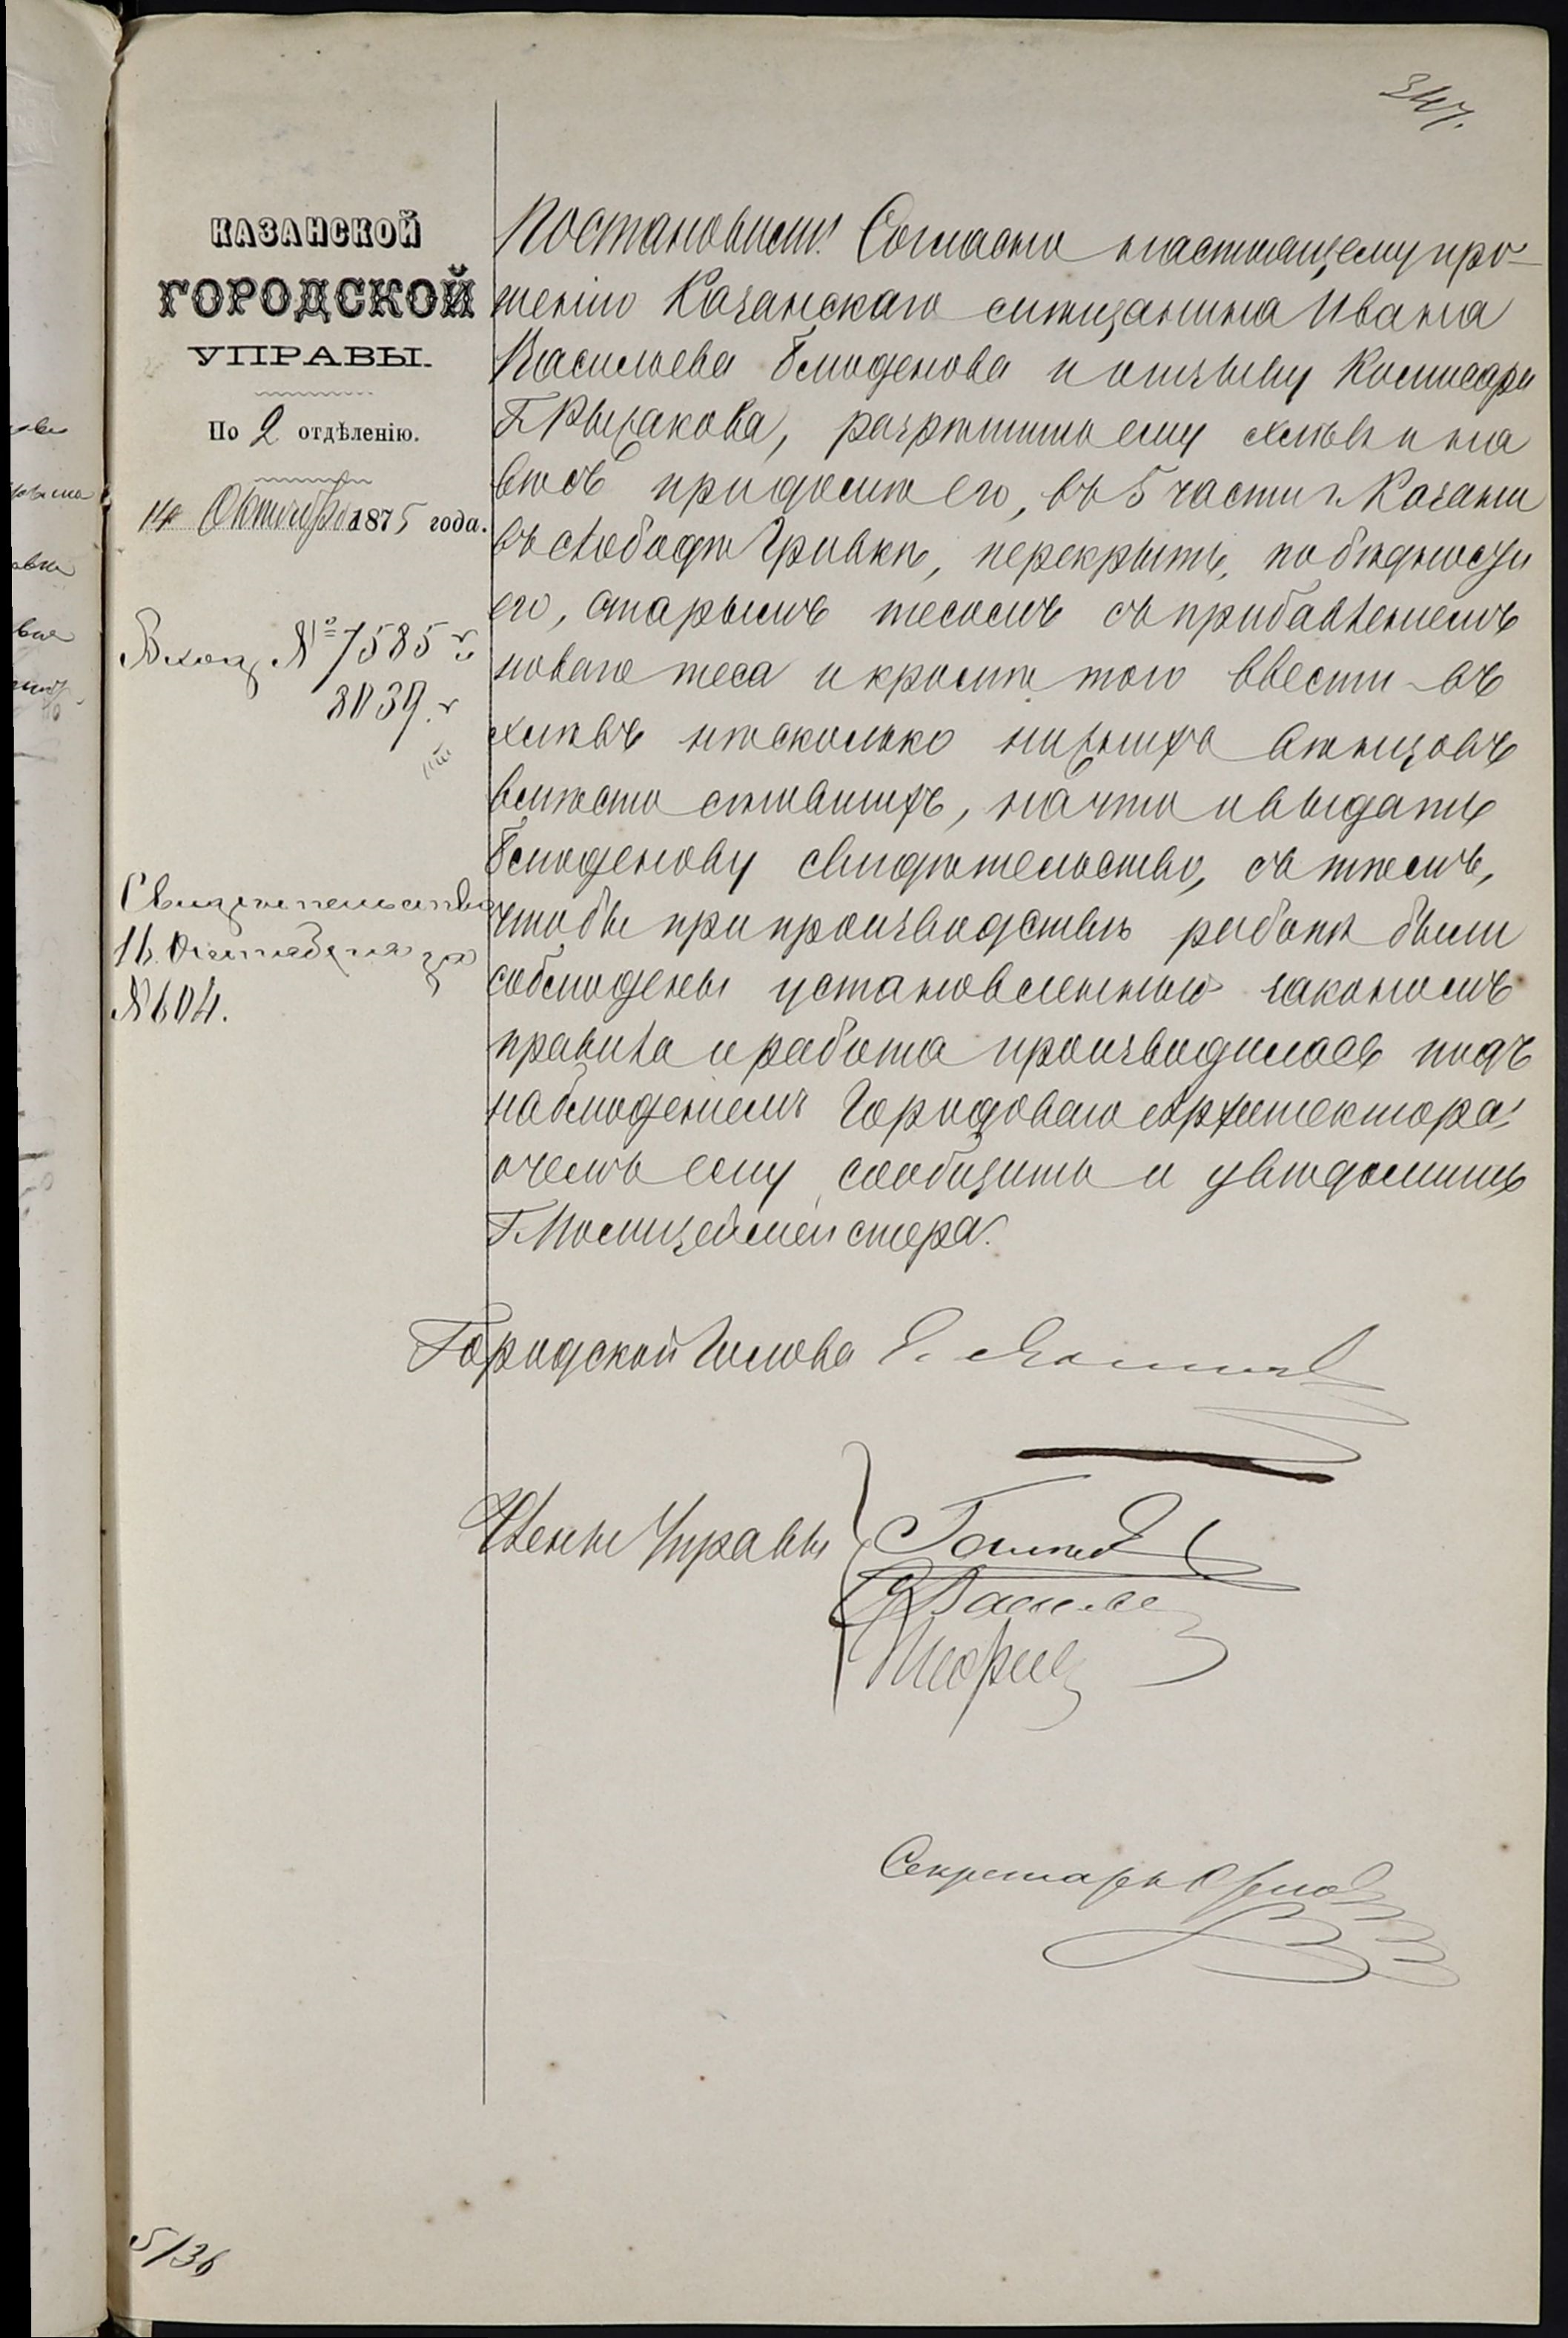 347.
КАЗАНСКОЙ
ГОРОДСКОЙ
УПРАВЫ.
По 2 отдѣленію.
14 Октября 1875 года.
Вход. № 7585 и
8039.
Свидѣтельство
16 Октября за
№ 604.
Постановили: Согласно настоящему про-
шенію Казанскаго мѣщанина Ивана
Васильева и отзыву Коммисара
Г. Рыбакова, разрѣшить ему хлѣвъ и на
вѣсъ при домѣ его, въ 5 части г. Казани
въ слободѣ Гривкѣ, перекрыть, по бѣдности
его, старымъ тесомъ съ прибавленіемъ
новаго теса и кромѣ того ввести въ
хлѣвъ нѣсколько нижнихъ вѣнцовъ
вмѣсто сгнившихъ, на что и выдать
свидѣтельство, съ тѣмъ,
чтобы при производствѣ работъ были
соблюдены установленныя закономъ
правила и работа производилась подъ
наблюденіемъ Городоваго Архитектора,
о чемъ ему сообщить и увѣдомить
Г. Полицеймейстера.
Городской Голова
Члены Управы
Секретарь
5/36